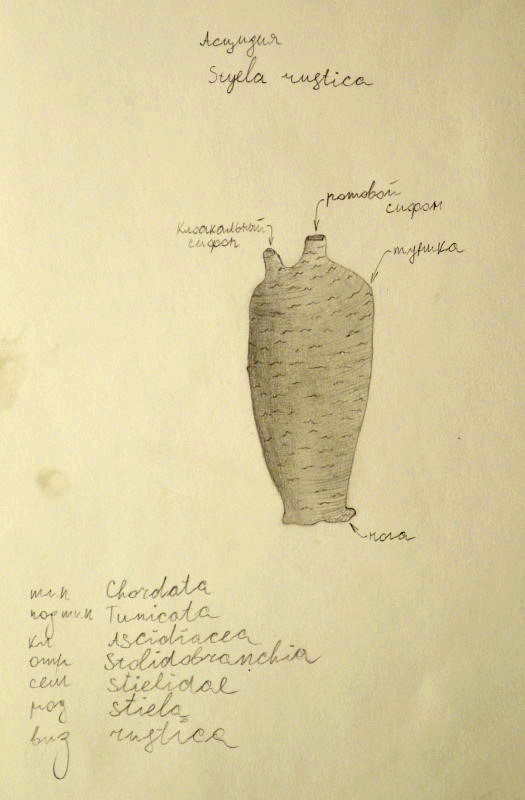 Асцидия
Styela rustica
ротовой
сифон
клоакальный
сифон
туника
нога
тип Chordata
подтип Tunicata
кл Ascidiacea
отр Stolidobranchia
сем Stielidae
род Stiela
вид rustica